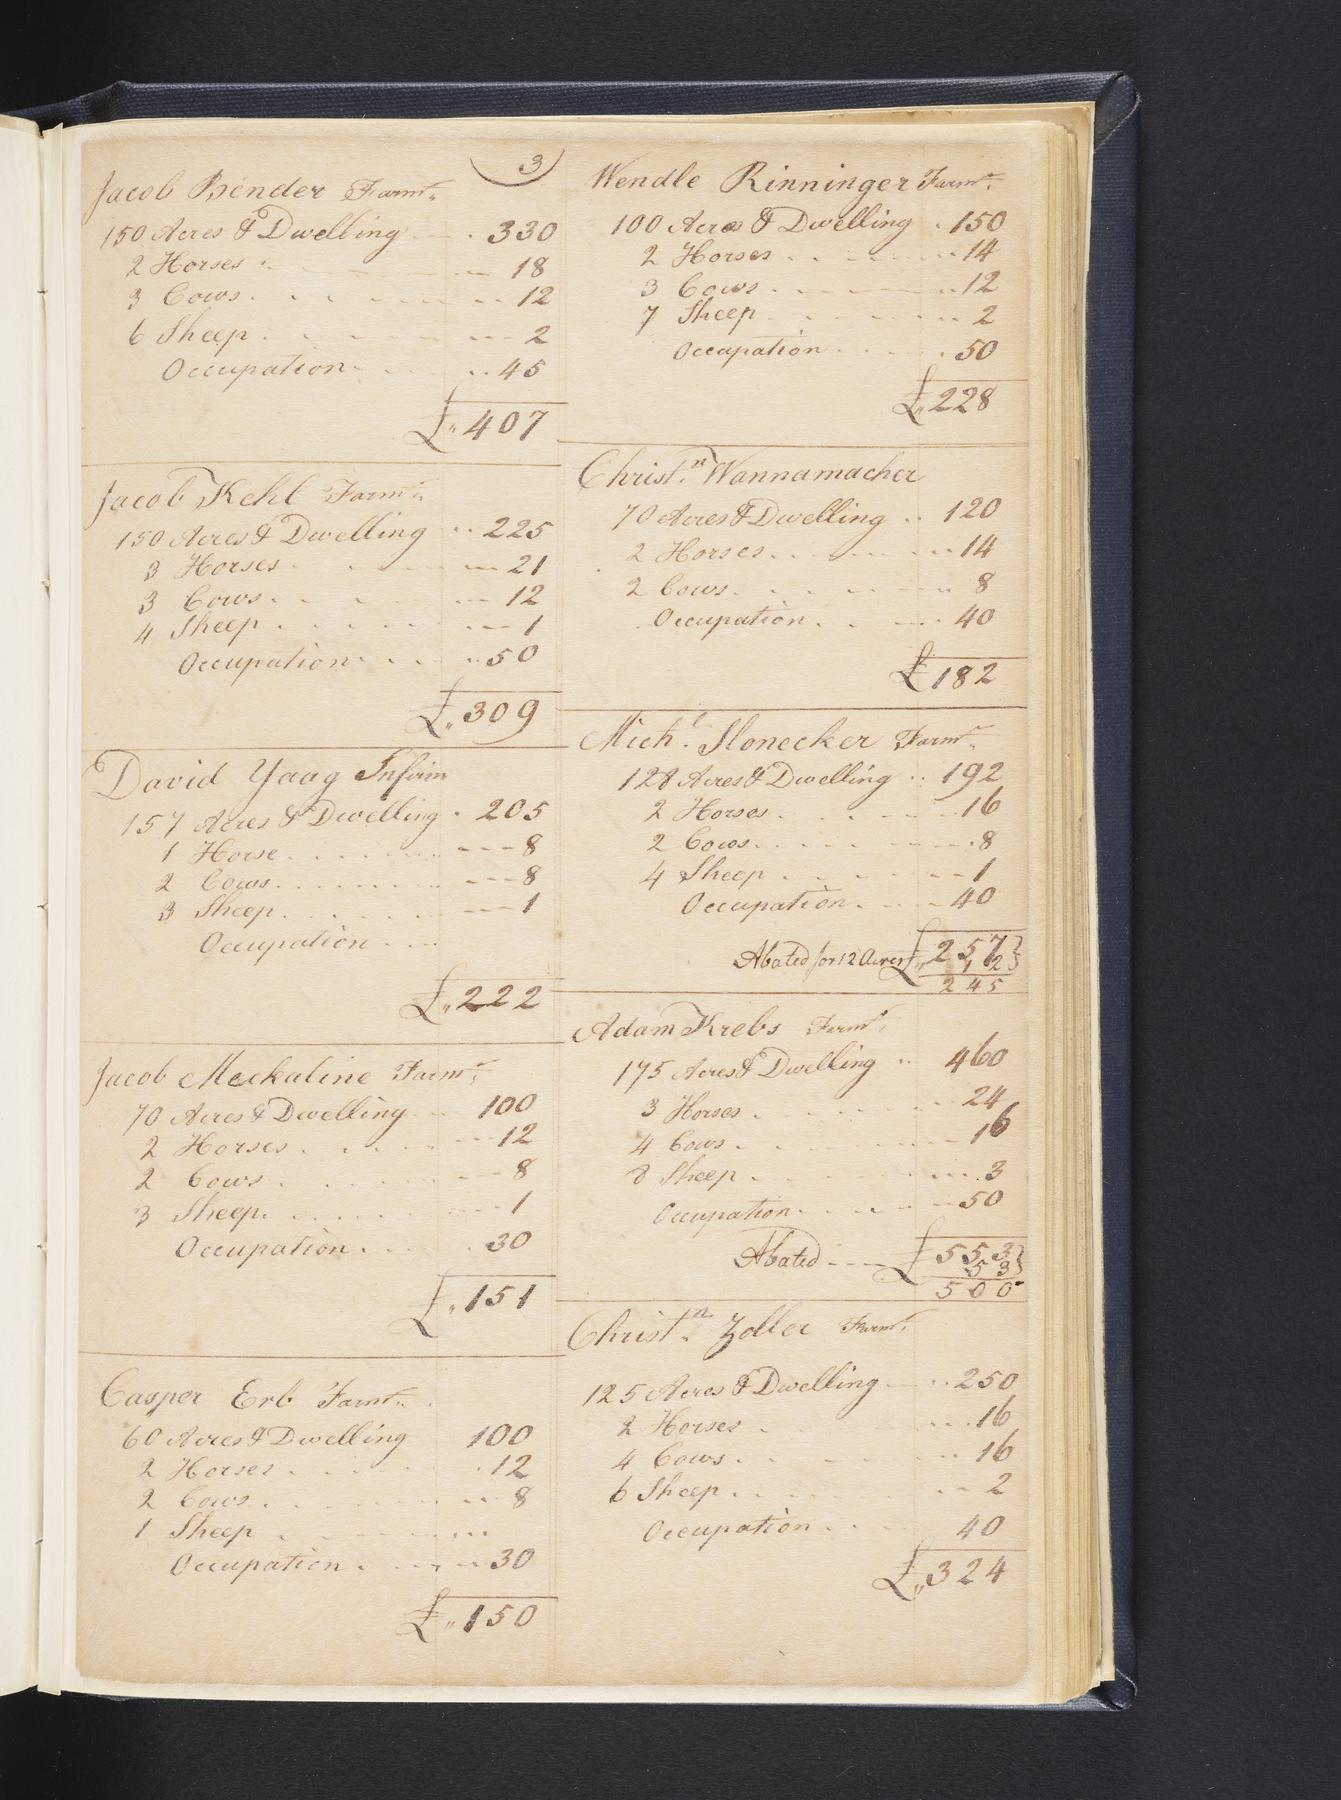 3
Jacob Bender Farmr.
150 Acres & Dwelling 330
2 Horses 18
3 Cows 12
6 Sheep 2
Occupation 45
£ 407
Jacob Kehl Farmr.
150 Acres & Dwelling 225
3 Horses 21
3 Cows 12
4 Sheep 1
Occupation 50
£ 309
David Yaag Infirm
157 Acres & Dwelling 205
1 Horse 8
2 Cows 8
3 Sheep 1
Occupation
£ 222
Jacob Meckaline Farmr.
70 Acres & Dwelling 100
2 Horses 12
2 Cows 8
3 Sheep 1
Occupation 30
£ 151
Casper Erb Farmr.
60 Acres & Dwelling 100
2 Horses 12
2 Cows 8
1 Sheep
Occupation 30
£ 150
Wendle Rinninger Farmr.
100 Acres & Dwelling 150
2 Horses 14
3 Cows 12
7 Sheep 2
Occupation 50
£ 228
Christn. Wannamacher
70 Acres & Dwelling 120
2 Horses 14
2 Cows 8
Occupation 40
£ 182
Michl. Slonecker Farmr.
128 Acres & Dwelling 192
2 Horses 16
2 Cows 8
4 Sheep 1
Occupation 40
£ 257
Abated for 12 Acres 12
245
Adam Krebs Farmr.
175 Acres & Dwelling 460
3 Horses 24
4 Cows 16
8 Sheep 3
Occupation 50
£ 553
Abated 53
500
Christn. Zoller Farmr.
125 Acres & Dwelling 250
2 Horses 16
4 Cows 16
6 Sheep 2
Occupation 40
£ 324